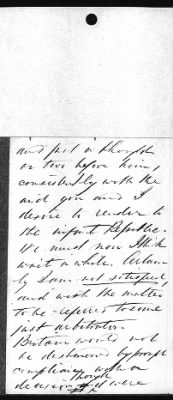 and put a thought
or two before him,
consistently with the
aid you and I
desire to render to
the infant Republic.
We must now I think
wait a while. Certain
ly I am not satisfied,
and wish the matter
to be referred to some
just arbitration.
Britain would not
be dishonored by
complying with a
decision though it were